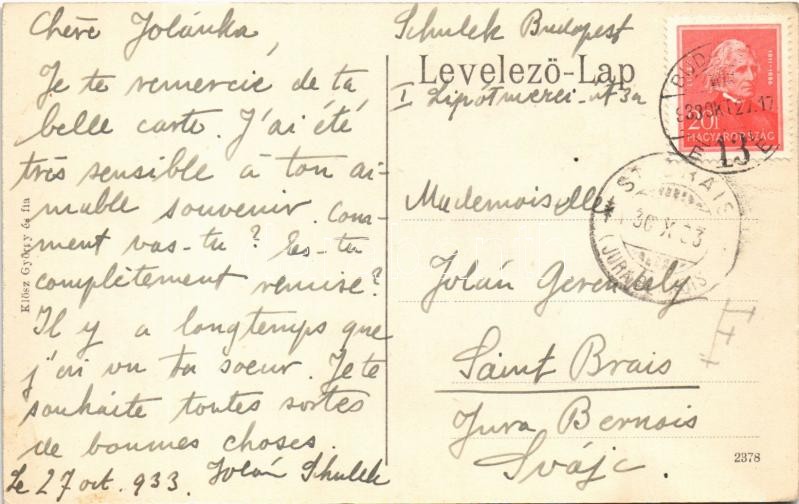 Chère Jolánka,
Je te remercie de ta
belle carte. J'ai été
très sensible à ton ai-
mable souvenir. Com-
ment vas-tu? Es-tu
complétement remise?
Il y a longtemps que
j'ai vu ta soeur. Je te
souhaite toutes sortes
de bonnes choses.
Le 27 oct. 933. Jolán Schulek
Klösz György és fia
Schulek Budapest
Levelező-Lap
I Lipótmezei-út 3a
Mademoiselle
Jolán Gerenkely
Saint Brais
Jura Bernois
Svájc.
2378
1811-1886
20f
MAGYARORSZÁG
BUD
933 OKT 27. 17
13
ST. BRAIS
30 X 33